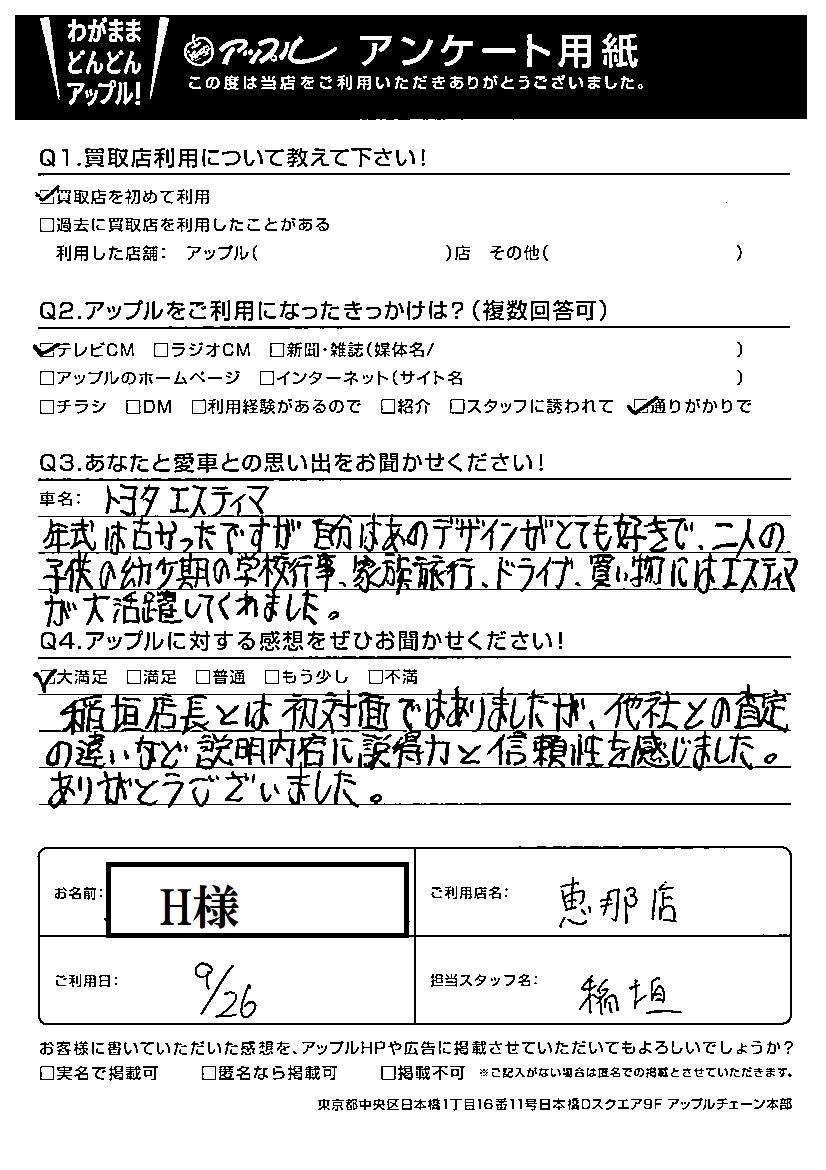 わがまま
どんどん
アップル!
アップル アンケート用紙
この度は当店をご利用いただきありがとうございました。
Q1.買取店利用について教えて下さい!
☑買取店を初めて利用
□過去に買取店を利用したことがある
利用した店舗: アップル( )店 その他( )
Q2.アップルをご利用になったきっかけは?(複数回答可)
☑テレビCM □ラジオCM □新聞・雑誌(媒体名/ )
□アップルのホームページ □インターネット(サイト名 )
□チラシ □DM □利用経験があるので □紹介 □スタッフに誘われて ☑通りがかりで
Q3.あなたと愛車との思い出をお聞かせください!
車名: トヨタ エスティマ
年式は古かったですが自分はあのデザインがとても好きで、二人の
子供の幼少期の学校行事、家族旅行、ドライブ、買い物にはエスティマ
が大活躍してくれました。
Q4.アップルに対する感想をぜひお聞かせください!
☑大満足 □満足 □普通 □もう少し □不満
稲垣店長とは初対面ではありましたが、他社との査定
の違いなど説明内容に説得力と信頼性を感じました。
ありがとうございました。
お名前: H様
ご利用店名: 恵那店
ご利用日: 9/26
担当スタッフ名: 稲垣
お客様に書いていただいた感想を、アップルHPや広告に掲載させていただいてもよろしいでしょうか?
□実名で掲載可 □匿名なら掲載可 □掲載不可 ※ご記入がない場合は匿名での掲載とさせていただきます。
東京都中央区日本橋1丁目16番11号日本橋Dスクエア9F アップルチェーン本部